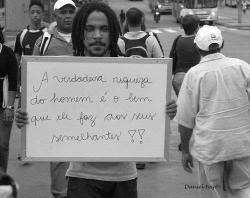 A verdadeira riqueza
do homem é o bem
que ele faz aos seus
semelhantes !!
Daniel